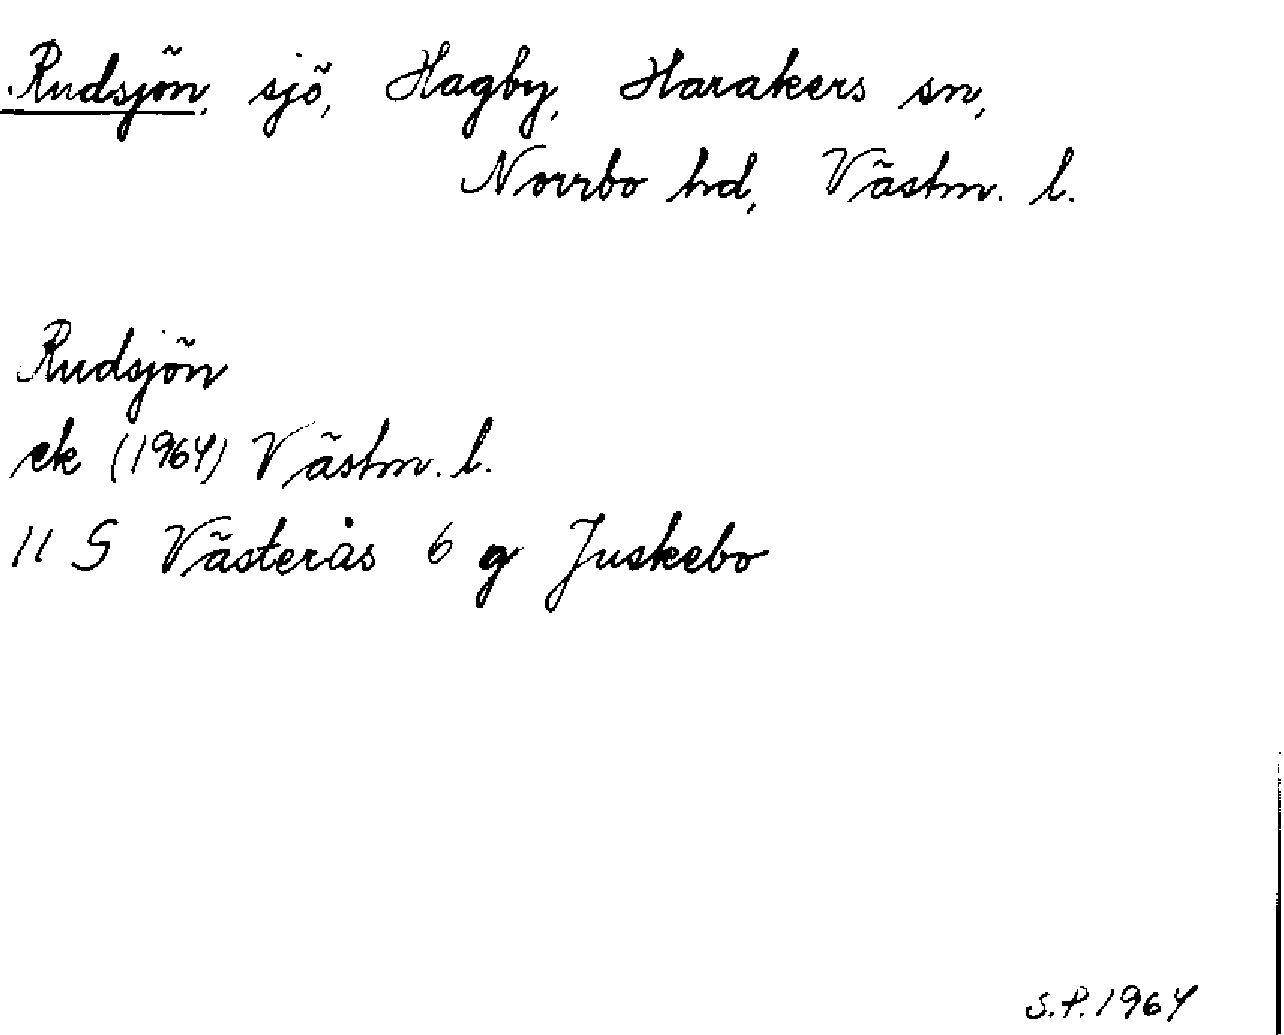 Rudsjön, sjö, Hagby, Harakers sn,
Norrbo hd, Västm. l.
Rudsjön
ek (1964) Västm. l.
11 G Västerås 6 g Juskebo
S.P. 1964